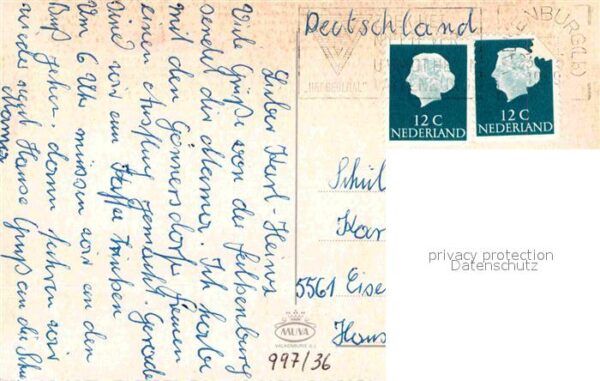 Lieber Karl-Heinz
Viele Grüße von der Falkenburg
sendet dir Mama. Ich habe
mit den Gönnersdorfer Frauen
einen Ausflug gemacht. Gerade
sind wir am Kaffee trinken
Um 6 Uhr müssen wir an den
Bus gehen, dann fahren wir
wieder nach Hause Gruß an die
Mama
Deutschland
12 C
NEDERLAND
12 C
NEDERLAND
Schül
Kar
5561 Eise
Haus
MUVA
VALKENBURG
997/36
privacy protection
Datenschutz